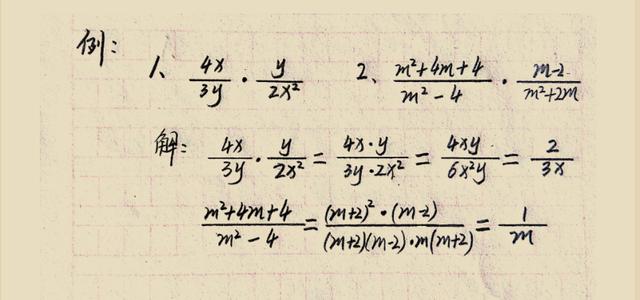 例：
1、 4x/3y · y/2x² 2、 m²+4m+4/m²-4 · m-2/m²+2m
解： 4x/3y · y/2x² = 4x·y/3y·2x² = 4xy/6x²y = 2/3x
m²+4m+4/m²-4 = (m+2)²·(m-2)/(m+2)(m-2)·m(m+2) = 1/m